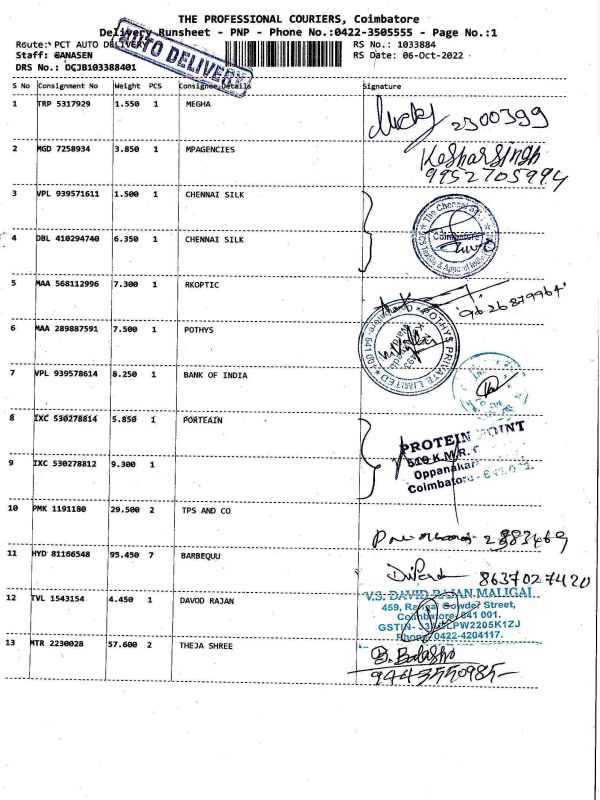 THE PROFESSIONAL COURIERS, Coimbatore
Delivery Runsheet - PNP - Phone No.:0422-3505555 - Page No.:1
Route: PCT AUTO DELIVERY RS No.: 1033884
Staff: GANASEN RS Date: 06-Oct-2022
DRS No.: DCJB103388401
AUTO DELIVERY
S No Consignment No Weight PCS Consignee Details Signature
1 TRP 5317929 1.550 1 MEGHA
2300399
2 MGD 7258934 3.850 1 MPAGENCIES
KesharSingh
9952705994
3 VPL 939571611 1.500 1 CHENNAI SILK
The Chennai
Coimbatore
4 DBL 410294740 6.350 1 CHENNAI SILK
5 MAA 568112996 7.300 1 RKOPTIC
9626879964
6 MAA 289887591 7.500 1 POTHYS
POTHYS PRIVATE LIMITED
7 VPL 939578614 8.250 1 BANK OF INDIA
8 IXC 530278814 5.850 1 PORTEAIN
PROTEIN POINT
519 K.M.R.
Oppanakar
Coimbatore - 641001
9 IXC 530278812 9.300 1
10 PMK 1191180 29.500 2 TPS AND CO
2383469
11 HYD 81166548 95.450 7 BARBEQUU
8637027420
12 TVL 1543154 4.450 1 DAVOD RAJAN
V.S. DAVID RAJAN MALIGAI
459, Rangai Gowder Street,
Coimbatore, 641 001.
GSTIN- PW2205K1ZJ
Phone: 0422-4204117.
13 MTR 2230028 57.600 2 THEJA SHREE
9443550985